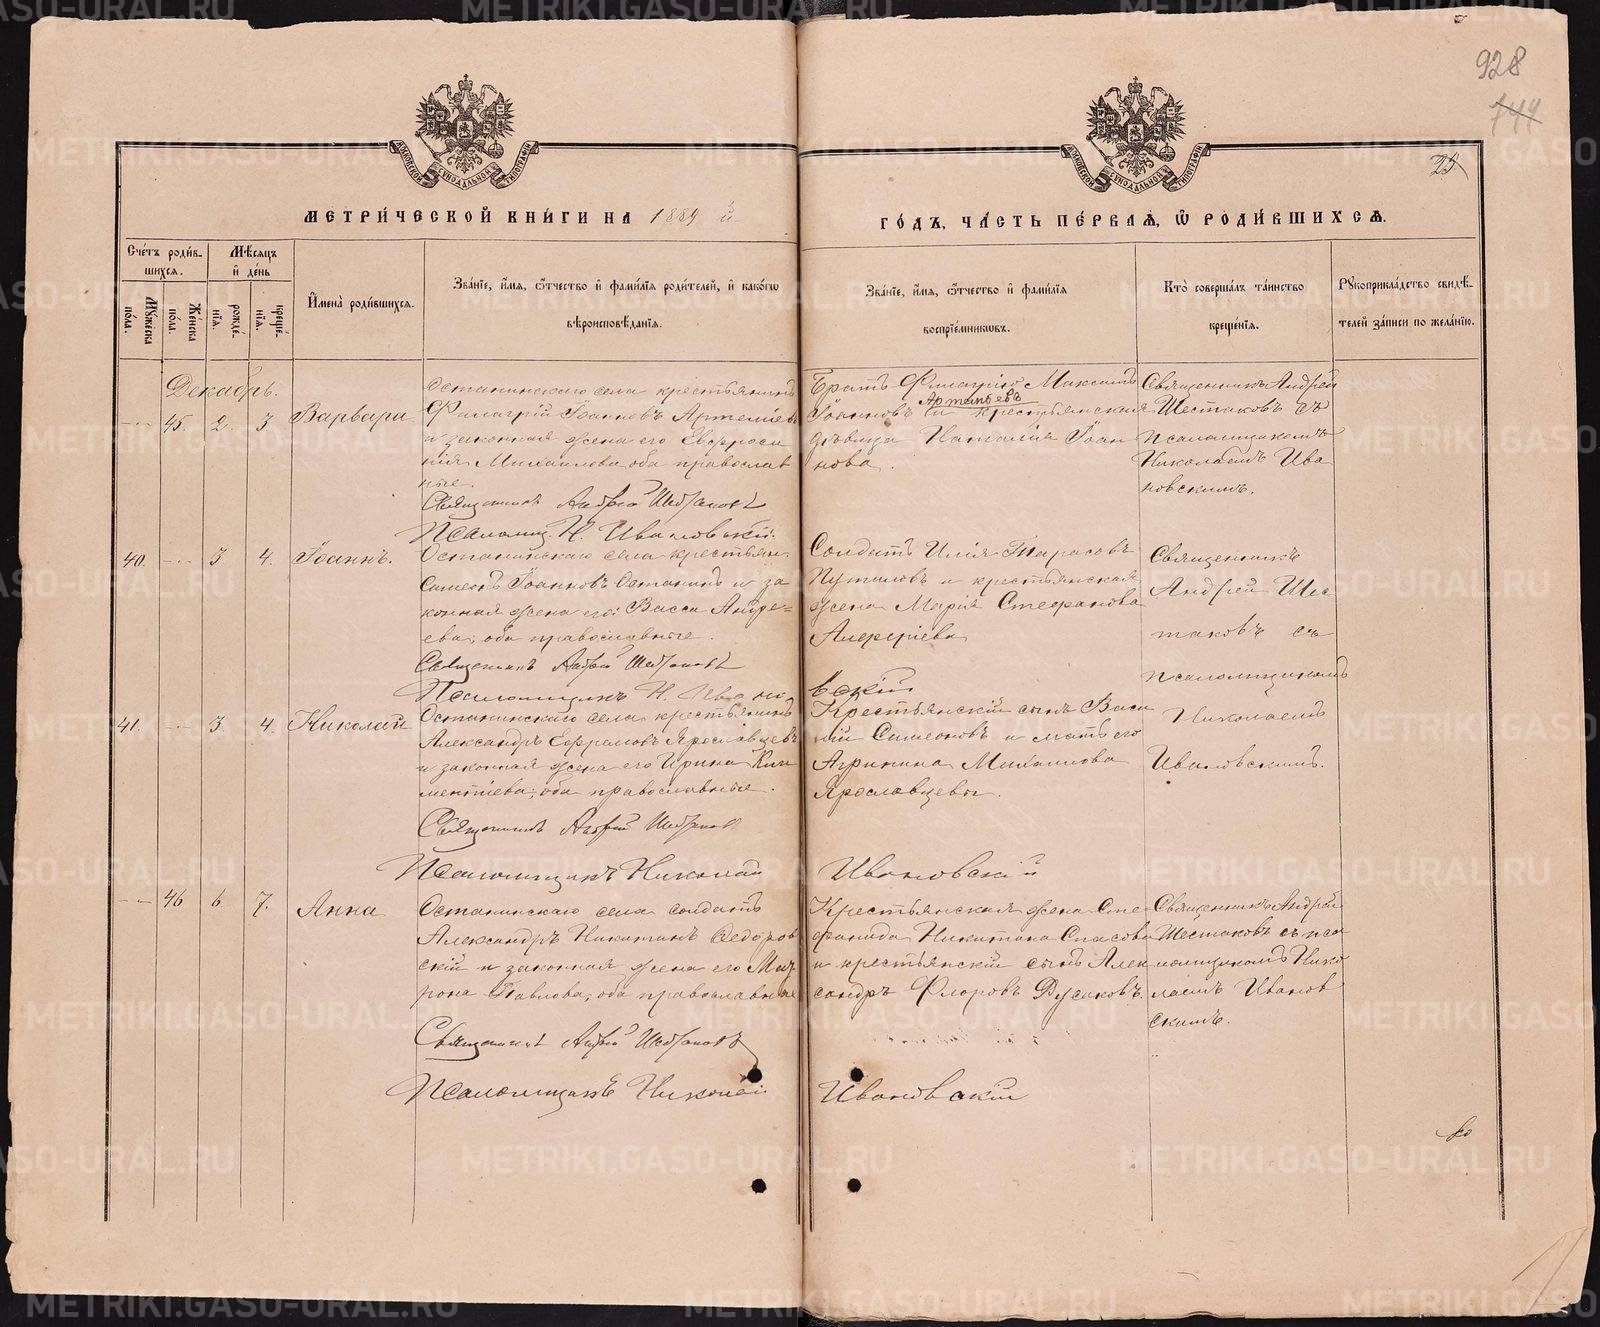 928
744
25
МЕТРИ́ЧЕСКОЙ КНИ́ГИ НА 1889 й
ГО́ДЪ, ЧА́СТЬ ПЕ́РВАЯ, Ѽ РОДИ́ВШИХСЯ.
Сче́тъ роди́в-
шихся.
Мѣсяцъ
и де́нь
Мꙋжеска
по́ла.
Же́нска
по́ла.
рожде́-
нїя.
креще́-
нїя.
Имена̀ роди́вшихся.
Зва́нїе, и́мя, ѻ́тчество и фами́лїя роди́телей, и како́гѡ
вѣроисповѣ́данїя.
Зва́нїе, и́мя, ѻ́тчество и фами́лїя
воспрїе́мникѡвъ.
Кто̀ соверша́лъ та́инство
креще́нїя.
Рꙋкоприкла́дство свидѣ́-
телей за́писи по жела́нїю.
Декабрь.
45. 2. 3 Варвара
Останинскаго села крестьянинъ
Филагрій Іоанновъ Артемьевъ
и законная жена его Евфроси
нія Михаилова, оба православ
ные.
Священникъ Андрей Шестаковъ
Псаломщ. Н. Ивановскій.
Братъ Филагрія Максимъ
Артемьевъ
Іоанновъ и крестьянская
дѣвица Наталія Іоан
нова.
Священникъ Андрей
Шестаковъ съ
псаломщикомъ
Николаемъ Ива
новскимъ.
40. 3 4. Іоаннъ.
Останинскаго села крестьян.
Симеонъ Іоанновъ Останинъ и за
конная жена его: Васса Андре=
ева, оба православные.
Священникъ Андрей Шестаковъ
Псаломщикъ Н. Ивано
вскій
Солдатъ Илія Тарасовъ
Путиловъ и крестьянская
жена Марія Стефанова
Алферіева
Священникъ
Андрей Шес
таковъ съ
псаломщикомъ
Николаемъ
Ивановскимъ.
41. 3. 4. Николай
Останинскаго села крестьянинъ
Александръ Ефремовъ Ярославцевъ
и законная жена его Ирина Кли
ментіева, оба православные.
Священникъ Андрей Шестаковъ
Псаломщикъ Николай Ивановскій
Крестьянскій сынъ Васи
лій Симеоновъ и мать его
Агрипина Михаилова
Ярославцевы.
46 6. 7. Анна
Останинскаго села солдатъ
Александръ Никитинъ Федоров
скій и законная жена его Мат
рона Павлова, оба православные
Священникъ Андрей Шестаковъ
Псаломщикъ Николай Ивановскій
Крестьянская жена Сте
фанида Никитина Спасова
и крестьянскій сынъ Алек
сандръ Флоровъ Русаковъ.
Священникъ Андрей
Шестаковъ съ пса
ломщикомъ Нико
лаемъ Иванов
скимъ.